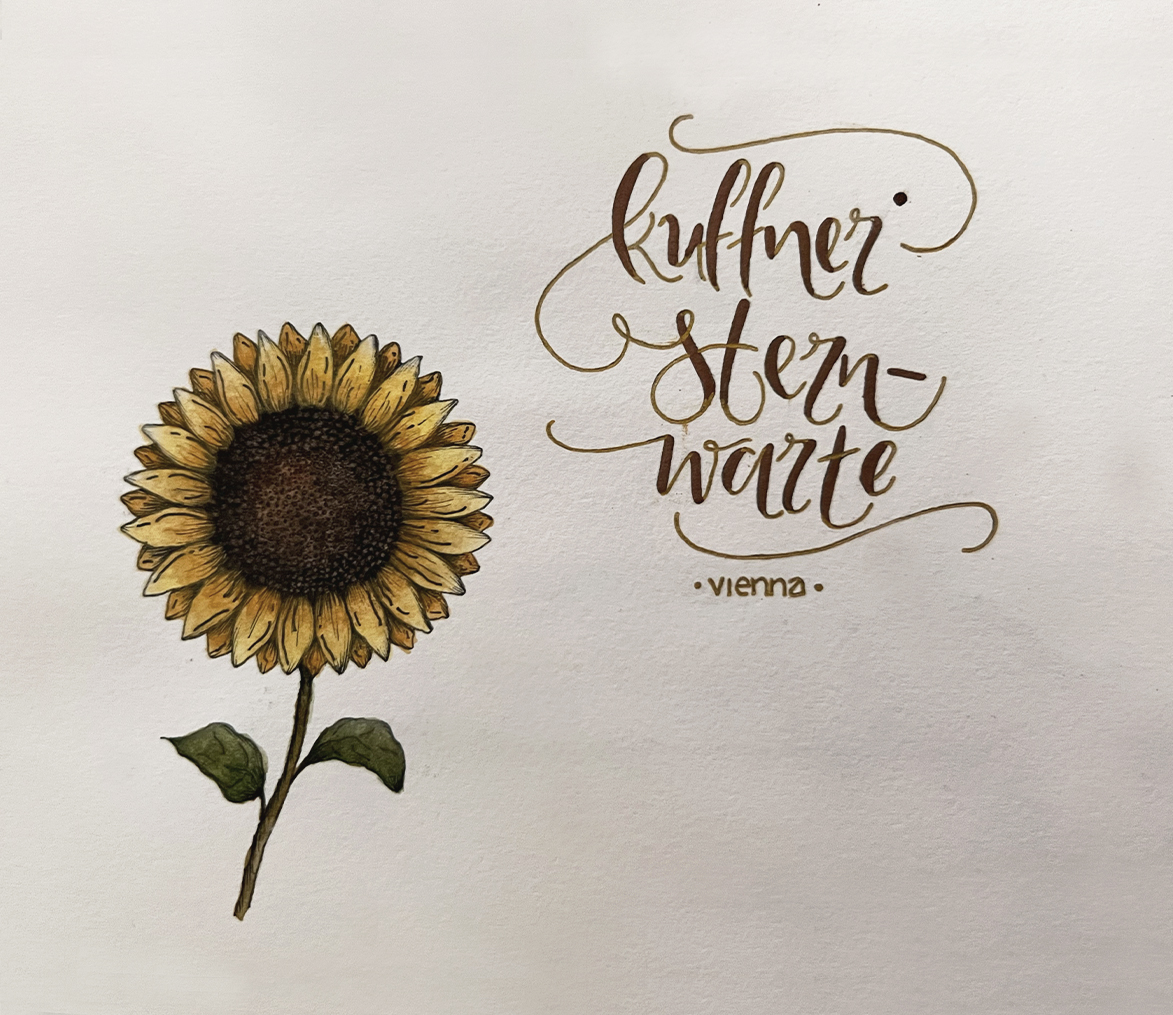 kuffner
stern-
warte
• vienna •